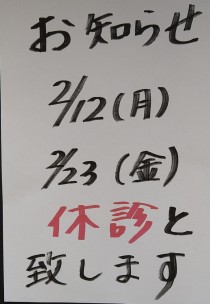 お知らせ
2/12(月)
2/23(金)
休診と
致します